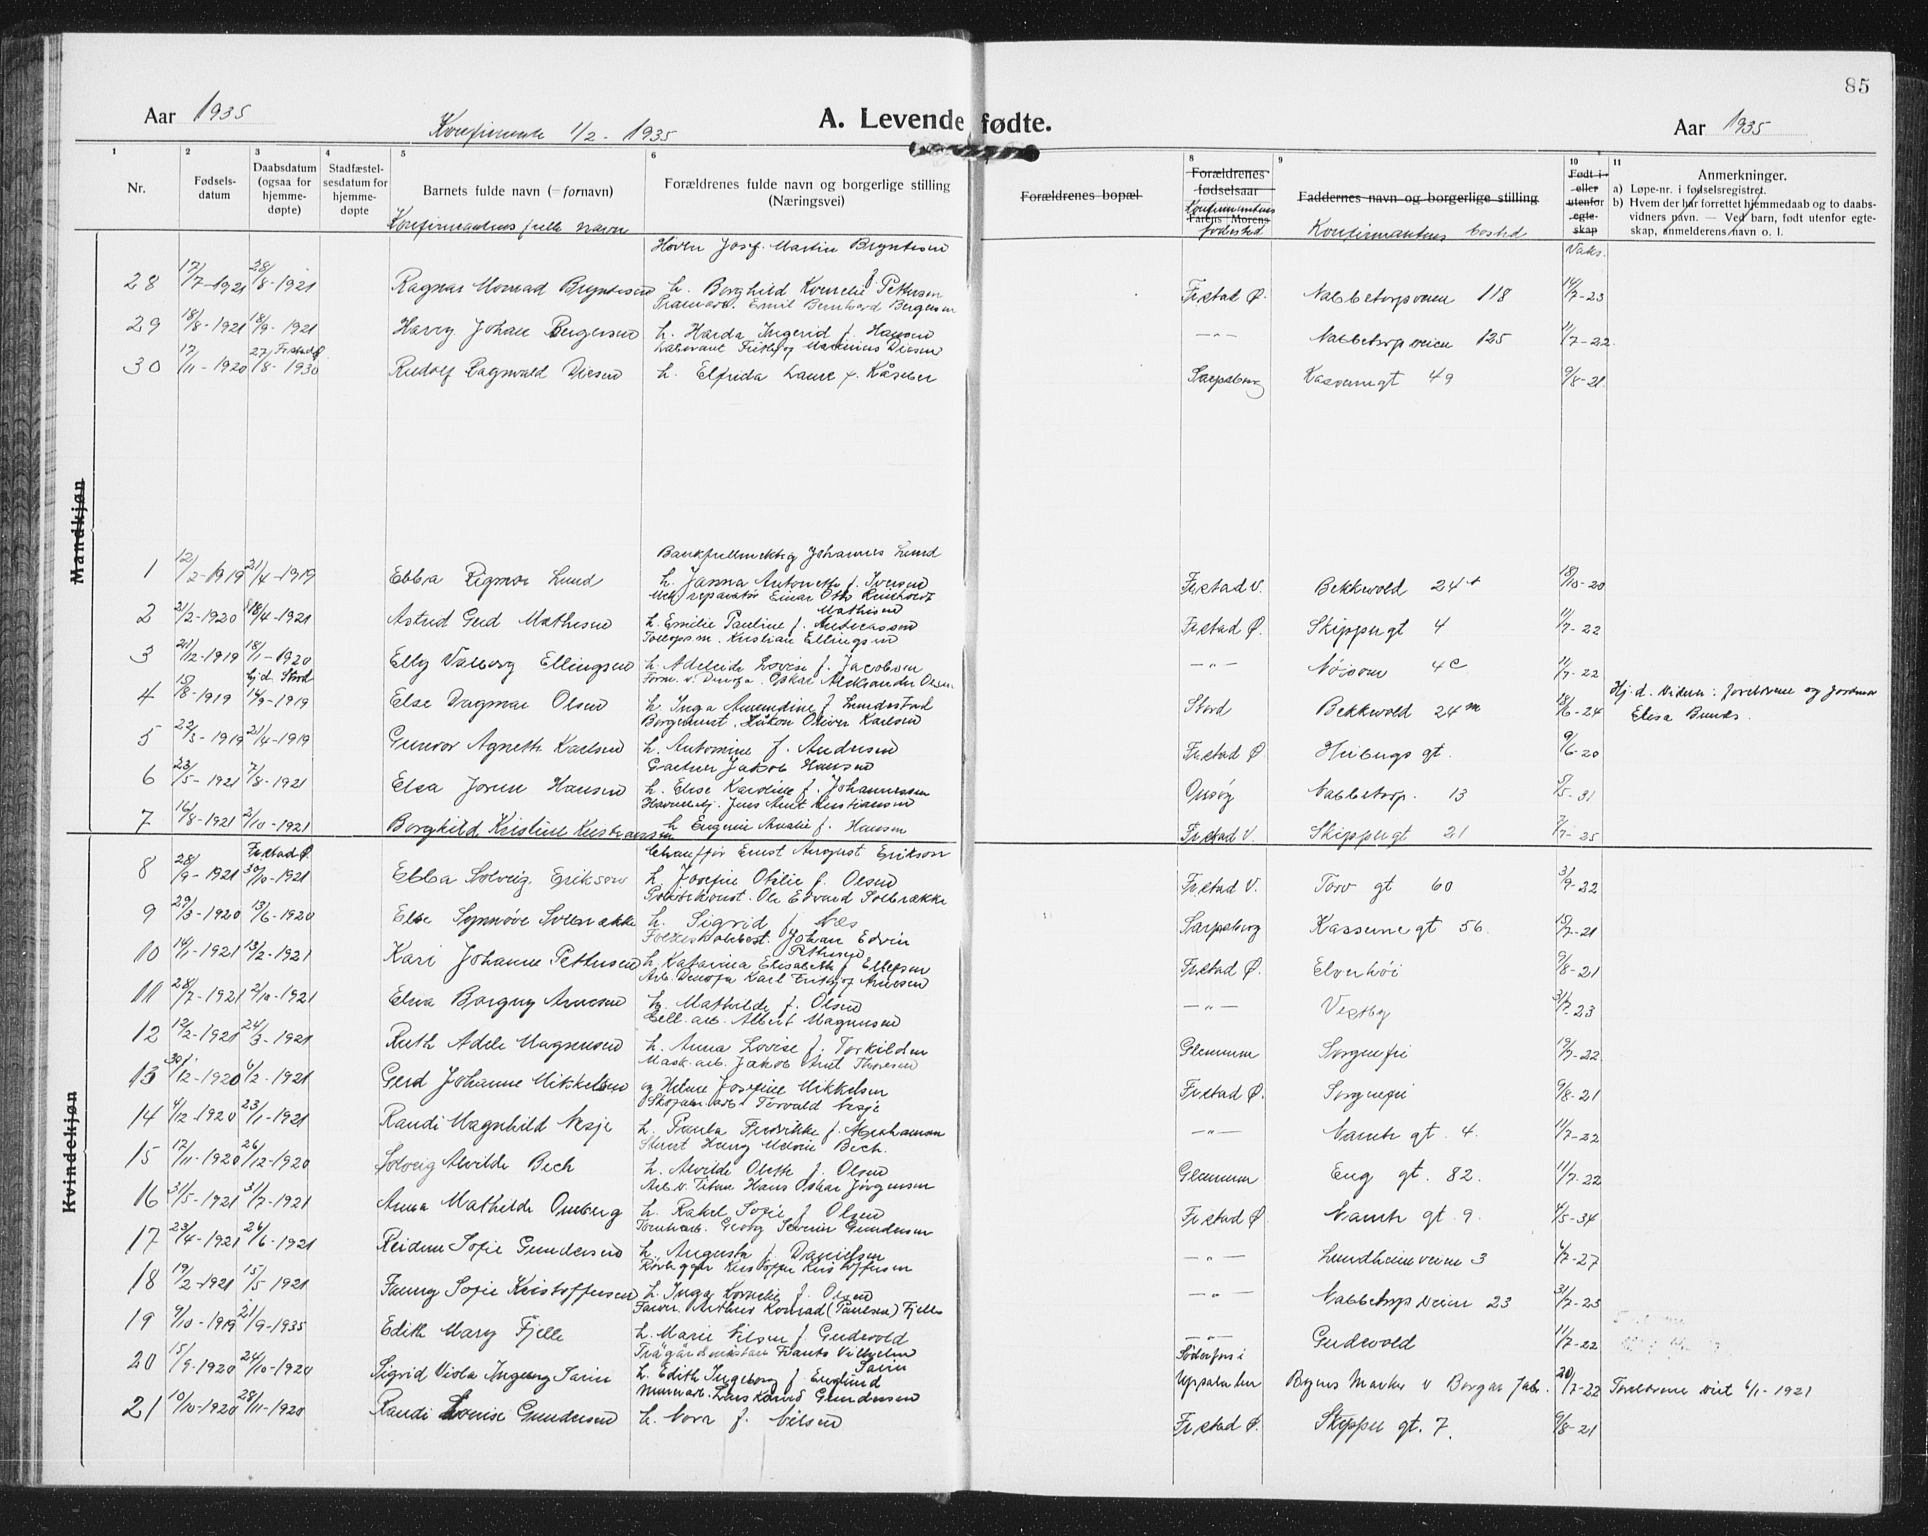 85
Aar 1935
Konfirmante 1/2 - 1935
A. Levende fødte.
Aar 1935
1 2 3 4 5 6 8 9 10 11
Nr.
Fødselsdatum
Daabsdatum (ogsaa for hjemmedøpte)
Stadfæstelsesdatum for hjemmedøpte
Barnets fulde navn (=fornavn)
Konfirmantens fulle navn
Forældrenes fulde navn og borgerlige stilling (Næringsvei)
Forældrenes bopæl
Forældrenes fødselsaar
Farens Morens
Konfirmantens fødested
Faddernes navn og borgerlige stilling
Konfirmantens bosted
Født i eller utenfor egteskap
Vaks.
Anmerkninger.
a) Løpe-nr. i fødselsregistret.
b) Hvem der har forrettet hjemmedaab og to daabsvidners navn. — Ved barn, født utenfor egteskap, anmelderens navn o. l.
Mandkjøn
28 17/7-1921 28/8-1921 Ragnar Monrad Bryntesen Josef Martin Bryntesen h. Borghild Kornelie f. Pettersen Frstad Ø. Nabbetorpveien 118 14/7-23
29 18/8-1921 18/9-1921 Harry Johan Bergersen Emil Bernhard Bergersen h. Harda Ingerid f. Hansen —"— Nabbetorpveien 125 11/7-22
30 17/11-1920 27/8-1930 Frstad Ø. Rudolf Ragnvald Diesen Fritjof Marinius Diesen h. Elfrida Laure f. Kåseber Sarpsborg Kaserngt 49 9/8-21
1 12/2-1919 21/4-1919 Ebba Rigmor Lund Bankfullmektig Johannes Lund h. Janna Antonette f. Iversen Frstad V. Bekkevold 24 18/10-20
2 21/2-1920 18/4-1921 Astrid Gerd Mathisen Mek. reparatør Einar Otto Reinholdt Mathisen h. Emilie Pauline f. Andreassen Frstad Ø. Skippergt 4 11/7-22
3 21/12-1919 18/1-1920 Elly Valborg Ellingsen Tollopsm. Kristian Ellingsen h. Adeleide Lovise f. Jacobsen —"— Nøisom 4c 11/7-22
4 15/8-1919 hj.d. Stord 14/9-1919 Else Dagmar Olsen Form. v. Denofa. Oskar Aleksander Olsen h. Inga Amundine f. Lundestad Stord Bekkevold 24 m 18/6-24 Hj.d. Vidner: foreldrene og jordmor Elisa Bunes.
5 22/3-1919 21/4-1919 Gunvor Agneth Karlsen Håkon Oliver Karlsen h. Antomine f. Andersen Frstad Ø. Heibergs gt. 9/6-20
6 23/5-1921 7/8-1921 Elsa Joren Hansen Gartner Jakob Hansen h. Elise Karoline f. Johannessen Onsøy Nabbetorp. 13 5/5-31
7 16/8-1921 2/10-1921 Borghild Kristine Kristiansen Jens Arnt Kristiansen h Eugenie Amalie f. Hansen Frstad V. Skippergt 21 7/7-25
Kvindekjøn
8 28/9-1921 Frstad Ø. 30/10-1921 Ebba Solveig Erikson Chauffør Ernst August Erikson h Josefine Otilie f. Olsen Frstad V. Torv gt 60 3/9-22
9 29/3-1920 13/6-1920 Else Synnøve Solbrække Politikonst. Ole Edvard Solbrække h. Sigrid f. Næs Sarpsborg Kasserne gt 56. 15/7-21
10 14/1-1921 13/2-1921 Kari Johanne Pettersen Folkeskolebest. Johan Edvin Pettersen h Katarina Elisabeth f. Ellefsen Frstad Ø. Elverhöi 9/8-21
11 28/7-1921 2/10-1921 Elna Borgny Arnesen Arb. Denofa Karl Fritjof Arnesen h. Mathilde f. Olsen —"— Vestby 31/7-23
12 12/2-1921 24/3-1921 Ruth Adele Magnussen Cell. arb. Albert Magnussen h. Anna Lovise f. Torkildsen Glemmen Sorgenfri 19/7-22
13 30/12-1920 6/2-1921 Gerd Johanne Mikkelsen Mask. arb. Jakob Arnt Thoresen og Helene Josefine Mikkelsen Frstad Ø. Sorgenfri 9/8-21
14 4/12-1920 23/1-1921 Randi Magnhild Nesje Skofabr. arb. Torvald Nesje h. Paula Fredrikke f. Abrahamsen —"— Nansens gt. 4. 11/7-22
15 17/11-1920 26/12-1920 Solveig Alvilde Bech Henry Bech. h. Alvilde Oleth f. Olsen Glemmen Eng gt. 82. 11/7-22
16 31/5-1921 31/7-1921 Anna Mathilde Omberg Arb. v. Titan Hans Oskar Jørgensen h. Rakel Sofie f. Olsen Frstad Ø. Nansens gt. 9. 4/5-34
17 23/4-1921 26/6-1921 Reidun Sofie Gundersen Tomtearb. Georg Severin Gundersen h. Augusta f. Danielsen —"— Lundheimveien 3 4/7-27
18 19/2-1921 15/5 1921 Fanny Sofie Kristoffersen Rørlegger Kristoffer Kristoffersen h Inga Kornelie f. Olsen —"— Nabbetorpveien 23 31/7-23
19 9/10-1919 21/9-1935 Edith Mary Fjelle Farver. Arthur Konrad (Paulsen) Fjelle h. Marie Nilsen f. Gudevold —"— Gudevold 11/7-22
20 15/9-1920 24/10-1920 Sigrid Viola Ingeborg Sarin Trägårdmästare Frants Vilhelm Sarin h. Edith Ingeborg f. Englund Söderfors i Uppsala len Byens Marker v Borgar Jab. 20/7-22 Foreldrene viet 6/1-1921
21 10/10-1920 28/11-1920 Randi Lovise Gundersen Murerarb. Lars Karvid Gundersen h. Nora f. Nilsen Frstad Ø. Skipper gt. 7. 9/8-21